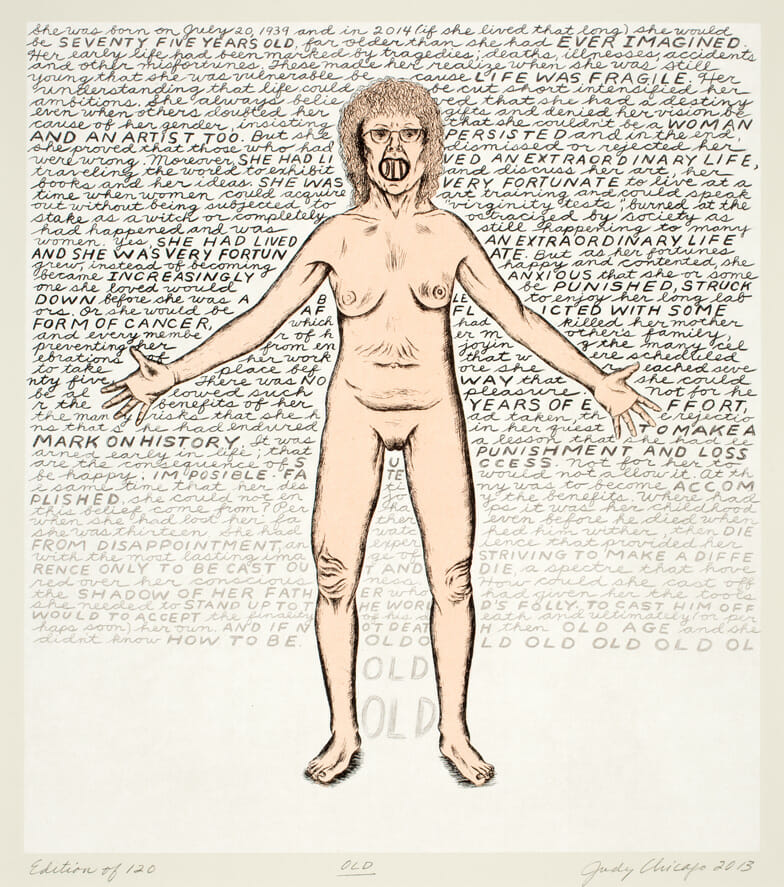 She was born on July 20, 1939 and in 2014 (if she lived that long) she would
be SEVENTY FIVE YEARS OLD, far older than she had EVER IMAGINED.
Her early life had been marked by tragedies; deaths, illnesses, accidents
and other misfortunes. These made her realize when she was still
young that she was vulnerable be cause LIFE WAS FRAGILE. Her
understanding that life could be cut short intensified her
ambitions. She always belie ved that she had a destiny
even when others doubted her gifts and denied her vision be
cause of her gender, insisting that she couldn't be a WOMAN
AND AN ARTIST TOO. But she PERSISTED and in the end
she proved that those who had dismissed or rejected her
were wrong. Moreover, SHE HAD LI VED AN EXTRAORDINARY LIFE,
traveling the world to exhibit and discuss her art, her
books and her ideas. SHE WAS VERY FORTUNATE to live at a
time when women could acquire art training and could speak
out without being subjected to "virginity tests", burned at the
stake as a witch or completely ostracized by society as
had happened and was still happening to many
women. Yes, SHE HAD LIVED AN EXTRAORDINARY LIFE
AND SHE WAS VERY FORTUN ATE. But as her fortunes
grew, instead of becoming happy and contented, she
became INCREASINGLY ANXIOUS that she or some
one she loved would be PUNISHED, STRUCK
DOWN before she was A B LE to enjoy her long lab
ors. Or she would be AF FL ICTED WITH SOME
FORM OF CANCER, which had killed her mother
and every membe r of h er m other's family,
preventing her from en joyin g the many cel
ebrations of her work that w ere scheduled
to take place bef ore she reached seve
nty five. There was NO WAY that she could
be al lowed such pleasure. Not for he
r the benefits of her YEARS OF E FFORT,
the man y risks that she h ad taken, th e rejectio
ns that s he had endured in her quest T O MAKE A
MARK ON HISTORY. It was a lesson that she had le
arned early in life; that PUNISHMENT AND LOSS
are the consequence of S U CCESS. Not for her to
be happy; IMPOSIBLE. FA TE would not allow it. At th
e same time that her des ti ny was to become ACCOM
PLISHED, she could not en jo y the benefits. Where had
this belief come from? Per ha ps it was her childhood
when she had lost her fa ther even before he died when
she was thirteen. She had watc hed him wither, then DIE
FROM DISAPPOINTMENT, an experi ence that provided her
with the most lasting ima ge of STRIVING TO MAKE A DIFFE
RENCE ONLY TO BE CAST OU T AND DIE, a spectre that hove
red over her conscious ness. How could she cast off
the SHADOW OF HER FATH ER who had given her the tools
she needed to STAND UP TO T HE WORL D'S FOLLY. TO CAST HIM OFF
WOULD TO ACCEPT the finality of his d eath and ultimately (or per
haps soon) her own. AND IF N OT DEAT H then OLD AGE and she
didn't know HOW TO BE OLD O LD OLD OLD OLD OL
OLD
OLD
Edition of 120 OLD Judy Chicago 2013